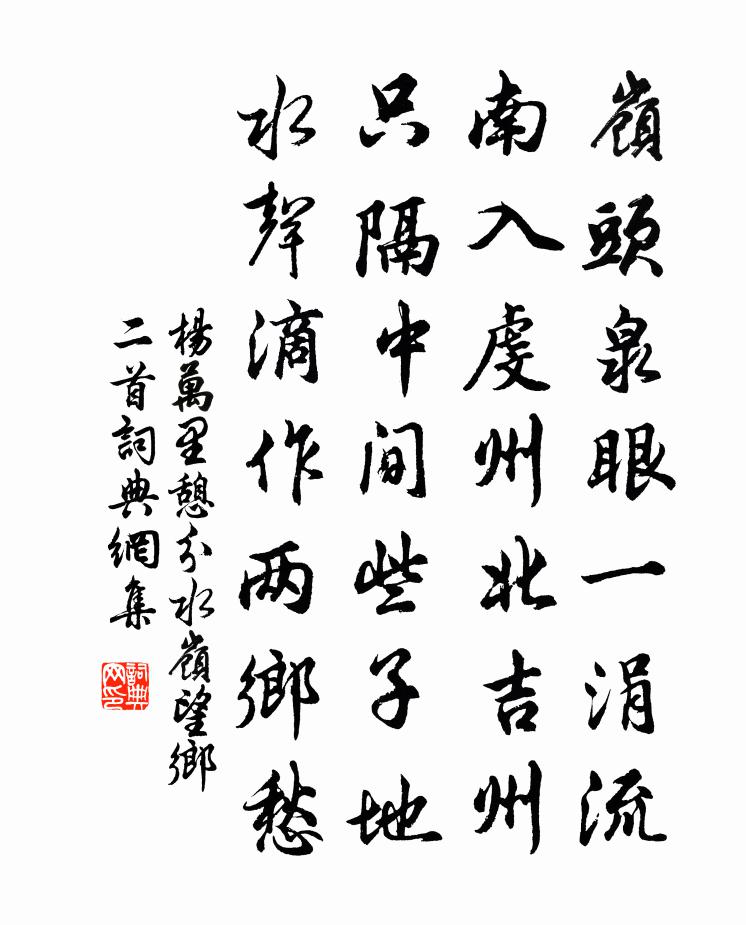 嶺頭泉眼一涓流
南入虔州北吉州
只隔中間些子地
水聲滴作两鄉愁
楊萬里憩分水嶺望鄉
二首詞典網集
詞典
网印